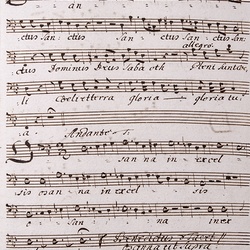 an
ctus San - ctus San - ctus San - ctus
allegro.
ctus Dominus Deus Saba oth Pleni sunt
li Coeli et terra gloria gloria tu
a. Andante
san na in excel
sis osan - na in excel sis
o - San - na in ex
Benedictus
osanna ut supra